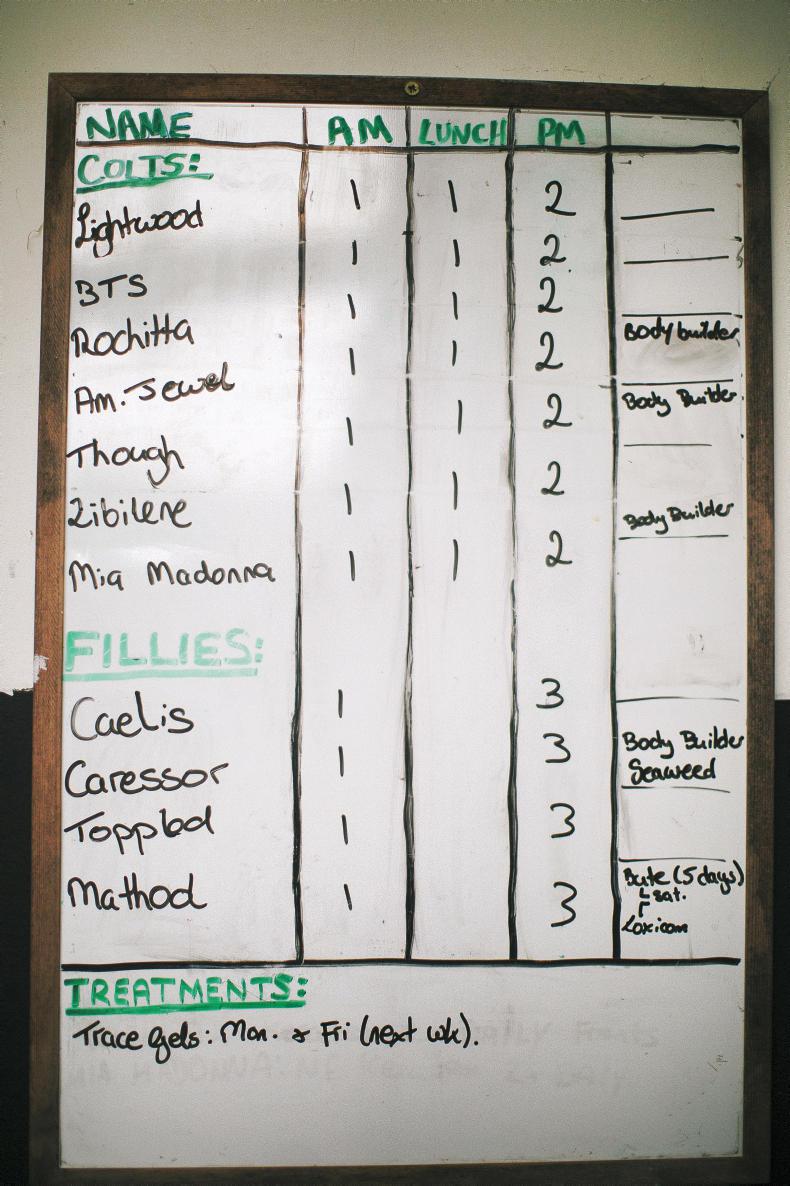 NAME AM LUNCH PM
COLTS:
Lightwood 1 1 2
BTS 1 1 2
Rochitta 1 1 2 Body builder
Am. Jewel 1 1 2 Body Builder
Though 1 1 2
Zibilene 1 1 2 Body Builder
Mia Madonna 1 1 2
FILLIES:
Caelis 1 3
Caressor 1 3 Body Builder
Seaweed
Toppled 1 3
Mathod 1 3 Bute (5 days)
↳ Sat.
Loxicom
TREATMENTS:
Trace gels: Mon. & Fri (next wk).